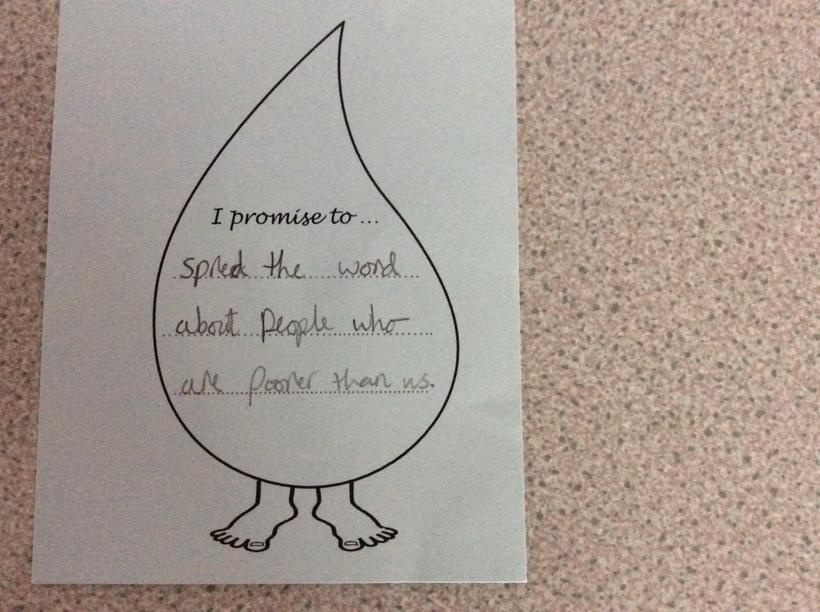 I promise to...
spred the word
about people who
are poorer than us.